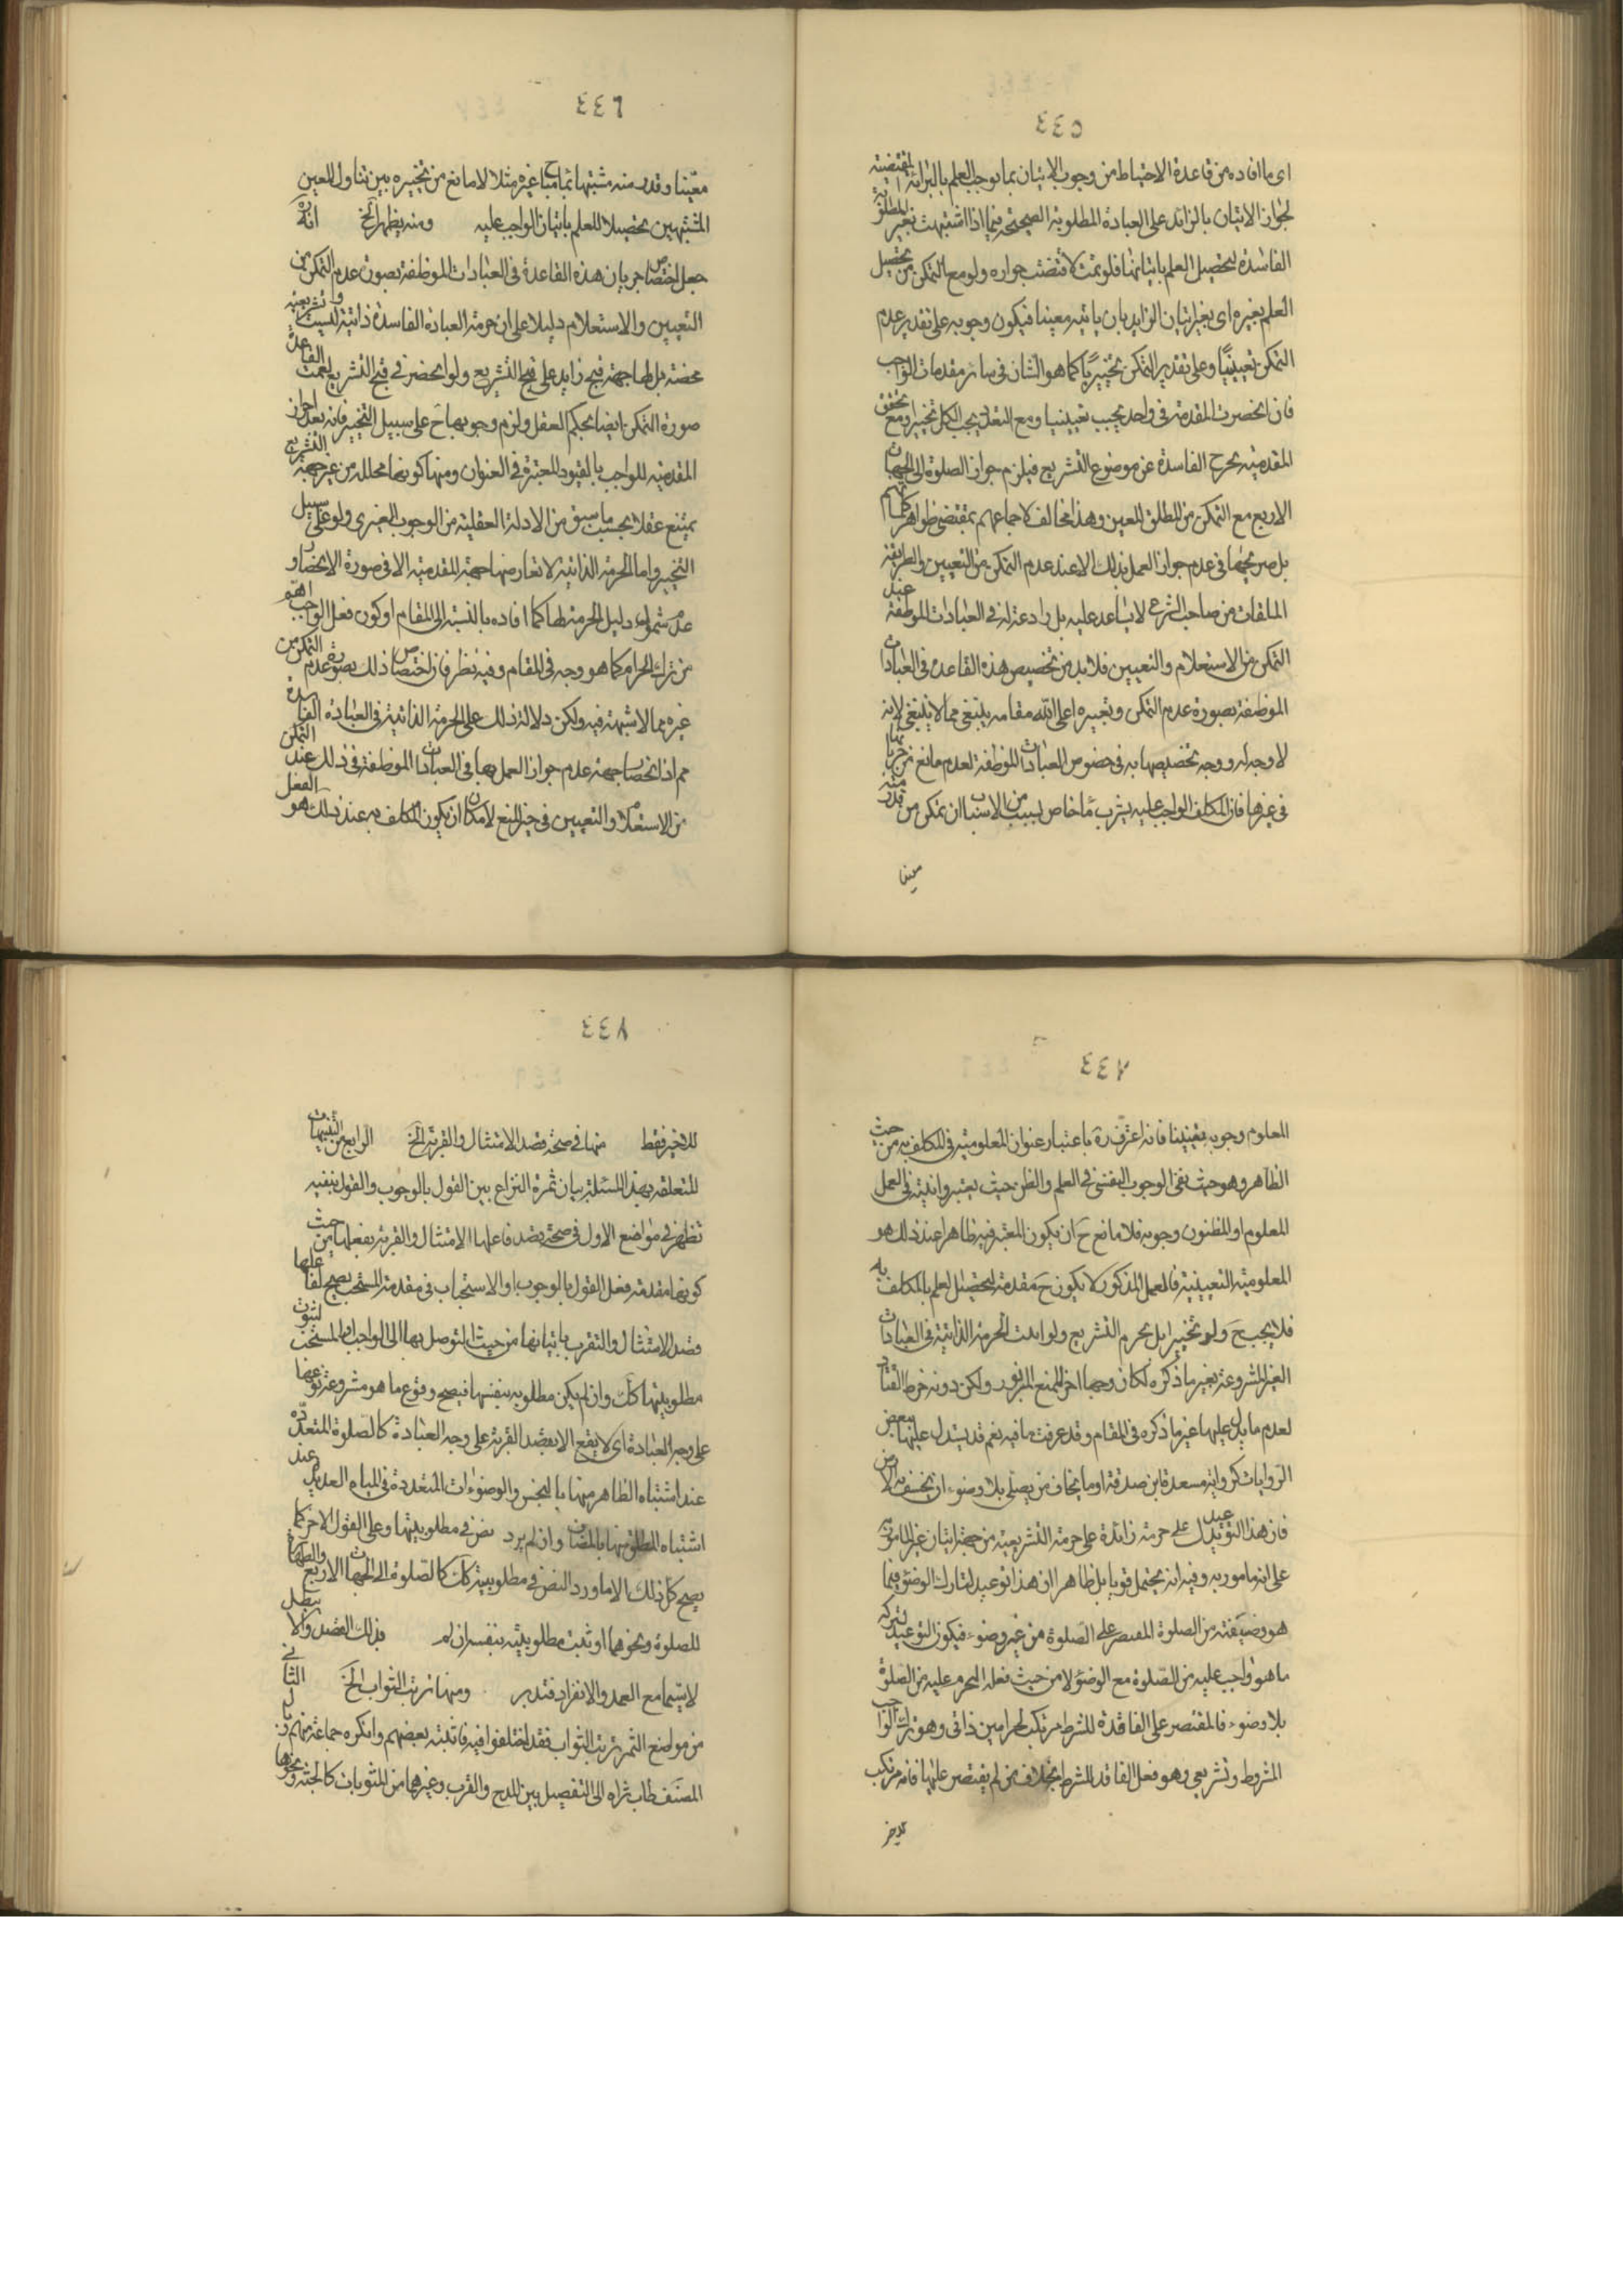 ٤٤٥
اى ما افاده من قاعدة الاحتياط من وجوب الاتيان بما يوجب العلم بالبرائة المقتضية
لجواز الاتيان بالزائد على العبادة المطلوبة الصحيحة فيما اذا اشتبهت بغير المطلوبة
الفاسدة لتحصيل العلم باتيانها فلو تمت لاقتضت جوازه ولو مع التمكن من تحصيل
العلم بغيره اى بغير اتيان الزايد بان ياتيه معينا فيكون وجوبه على تقدير عدم
التمكن تعيينيا وعلى تقدير التمكن تخييريا كما هو الشان فى سائر مقدمات الواجب
فان انحصرت المقدمة فى واحد يجب تعيينيا ومع التعدد يجب الكل تخييرا ومع تحقق
المقدمية يخرج الفاسدة عن موضوع التشريع فيلزم جواز الصلوة الى الجهات
الاربع مع التمكن من المطلق المعين وهذا مخالف لاجماعهم بمقتضى ظواهر كلماتهم
بل صريحها فى عدم جواز العمل بذلك الا عند عدم التمكن من التعيين والطريقة
الملقات من صاحب الشرع لا يساعد عليه بل رادعة له فى العبادات الموظفة عند
التمكن من الاستعلام والتعيين فلا بد من تخصيص هذه القاعدة فى العبادات
الموظفة بصورة عدم التمكن وتعبيره اعلى الله مقامه بينبغى مما لا ينبغى لانه
لا وجه له ووجه تخصيصها به فى خصوص العبادات الموظفة لعدم مانع من جريانها
فى غيرها فان المكلف الواجب عليه شرب ماء خاص لسبب من الاسباب ان تمكن من قدر منه
معينا
٤٤٦
معينا وقدر منه مشتبها بماء مباح غيره مثلا لا مانع من تخييره بين تناول المعين
المشتبهين تحصيلا للعلم باتيان الواجب عليه ومنه يظهر الخ انه ره
جعل اختصاص جريان هذه القاعدة فى العبادات الموظفة بصورة عدم التمكن من
التعيين والاستعلام دليلا على ان حرمة العبادة الفاسدة ذاتية وليست تشريعية
محضة بل لها جهة قبح زايد على قبح التشريع ولو انحصر فى قبح التشريع لعمت القاعدة
صورة التمكن ايضا بحكم العقل ولزم وجوبها ح على سبيل التخيير فانه بعد احراز
المقدمية للواجب بالقيود المعتبرة فى العنوان ومنها كونها محللة من غير جهة التشريع
يمتنع عقلا بحسب ما سبق من الادلة العقلية من الوجوب الغيرى ولو على سبيل
التخيير واما الحرمة الذاتية لا تعارضها جهة المقدمية الا فى صورة الانحصار و
عدم شمول دليل الحرمة لها كما افاده بالنسبة الى المقام او كون فعل الواجب اهم
من ترك الحرام كما هو وجه فى المقام وفيه نظر فان اختصاص ذلك بصورة عدم التمكن من
غيره مما لا شبهة فيه ولكن دلالة ذلك على الحرمة الذاتية فى العبادة الفاسدة
مم اذ انحصار جهة عدم جواز العمل بها فى العبادات الموظفة فى ذلك عند التمكن
من الاستعلام والتعيين فى حيز المنع لامكان ان يكون المكلف به عند ذلك هو الفعل
٤٤٧
المعلوم وجوبه تعيينا فانه اعترف ره باعتبار عنوان المعلومية فى المكلف به من حيث
الظاهر وهو حيث نفى الوجوب النفسى فى العلم والظن حيث يعتبروا فيه فى العمل
المعلوم او المظنون وجوبه فلا مانع ح ان يكون المعتبر فيه ظاهرا عند ذلك هو
المعلومية التعيينية فالعمل المذكور لا يكون ح مقدمة لتحصيل العلم بالمكلف به
فلا يجب ح ولو تخييرا بل يحرم التشريع ولو ابدت الحرمة الذاتية فى العبادات
الغير المشروعة بغير ما ذكره لكان وجها اخر للمنع المزبور ولكن دونه خرط القتاد
لعدم ما يدل عليها غير ما ذكره فى المقام وقد عرفت ما فيه نعم قد يستدل عليها ببعض
الروايات كرواية مسعدة ابن صدقة اوما يخاف من يصلى بلا وضوء ان يخسف به الارض
فان هذا التوعيد يدل على حرمة زائدة على حرمة التشريعية من جهة اتيان غير المامور به
على انه مامور به وفيه انه يحتمل قويا بل ظاهرا ان هذا توعيد لتارك الوضوء فيما
هو وضيفته من الصلوة المقتصر على الصلوة من غير وضوء فيكون التوعيد لتركه
ما هو واجب عليه من الصلوة مع الوضوء لا من حيث فعله المحرم عليه من الصلوة
بلا وضوء فالمقتصر على الفاقدة للشرط مرتكب لحرامين ذاتى وهو ترك الواجب
المشروط وتشريعى وهو فعل الفاقد للشرط بخلاف من لم يقتصر عليها فانه مرتكب
للاخر
٤٤٨
للاخير فقط منها فى صحة قصد الامتثال والقربة الخ الرابع من التنبيهات
المتعلقة بهذا المسئلة بيان ثمرة النزاع بين القول بالوجوب والقول بنفيه
تظهر فى مواضع الاول فى صحة قصد فاعلها الامتثال والقربة بفعلها من حيث
كونها مقدمة فعلى القول بالوجوب او الاستحباب فى مقدمة المستحب يصح لفاعلها
قصد الامتثال والتقرب باتيانها من حيث التوصل بها الى الواجب او المستحب لثبوت
مطلوبيتها كك وان لم يكن مطلوبه بنفسها فيصح وقوع ما هو مشروعة نوعها
على وجه العبادة اى لا يقع الا بقصد القربة على وجه العبادة كالصلوة المتعددة
عند اشتباه الظاهر منها بالنجس والوضوءات المتعددة فى المياه العديدة عند
اشتباه المطلق منها بالمضاف وان لم يرد نص فى مطلوبيتها وعلى القول الاخر كما
يصح كل ذلك الا ما ورد النص فى مطلوبيته كك كالصلوة الى الجهات الاربع والطهارة
للصلوة ونحوهما او ثبت مطلوبيته بنفسه ان لم يبطل بذلك القصد والا
لا سيما مع العمد والانفراد فتدبر ومنها ترتب الثواب الخ الثانى
من مواضع الثمرة ترتب الثواب فقد اختلفوا فيه فاثبته بعضهم وانكره جماعة منهم
المصنف طاب ثراه الى التفصيل بين المدح والقرب وغيرها من المثوبات كالجنة ونحوها